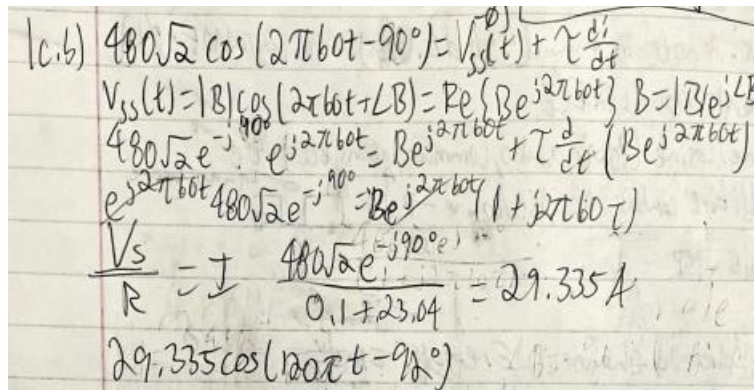 1c.b) 480√2 cos(2π60t-90°) = Vss(t) + τ di/dt
Vss(t) = |B|cos(2π60t+∠B) = Re{Be^{j2π60t}} B=|B|e^{j∠B}
480√2 e^{-j90°} e^{j2π60t} = Be^{j2π60t} + τ d/dt (Be^{j2π60t})
e^{j2π60t} 480√2 e^{-j90°} = Be^{j2π60t} (1 + j2π60τ)
Vs/R = I 480√2 e^{-j90°}/0.1+23.04 = 29.335A
29.335cos(120πt-92°)